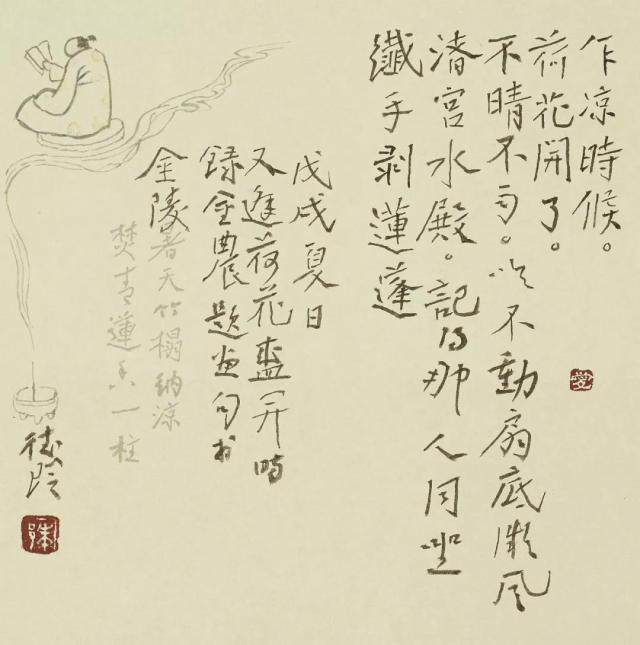 乍凉時候。
荷花開了。
不晴不雨。吹不動扇底微风
渚宮水殿。記得那人同坐
纖手剥蓮蓬
戊戌夏日
又逢荷花盛开時
録金農题画句书
金陵
暑天竹榻納凉
焚青蓮香一柱